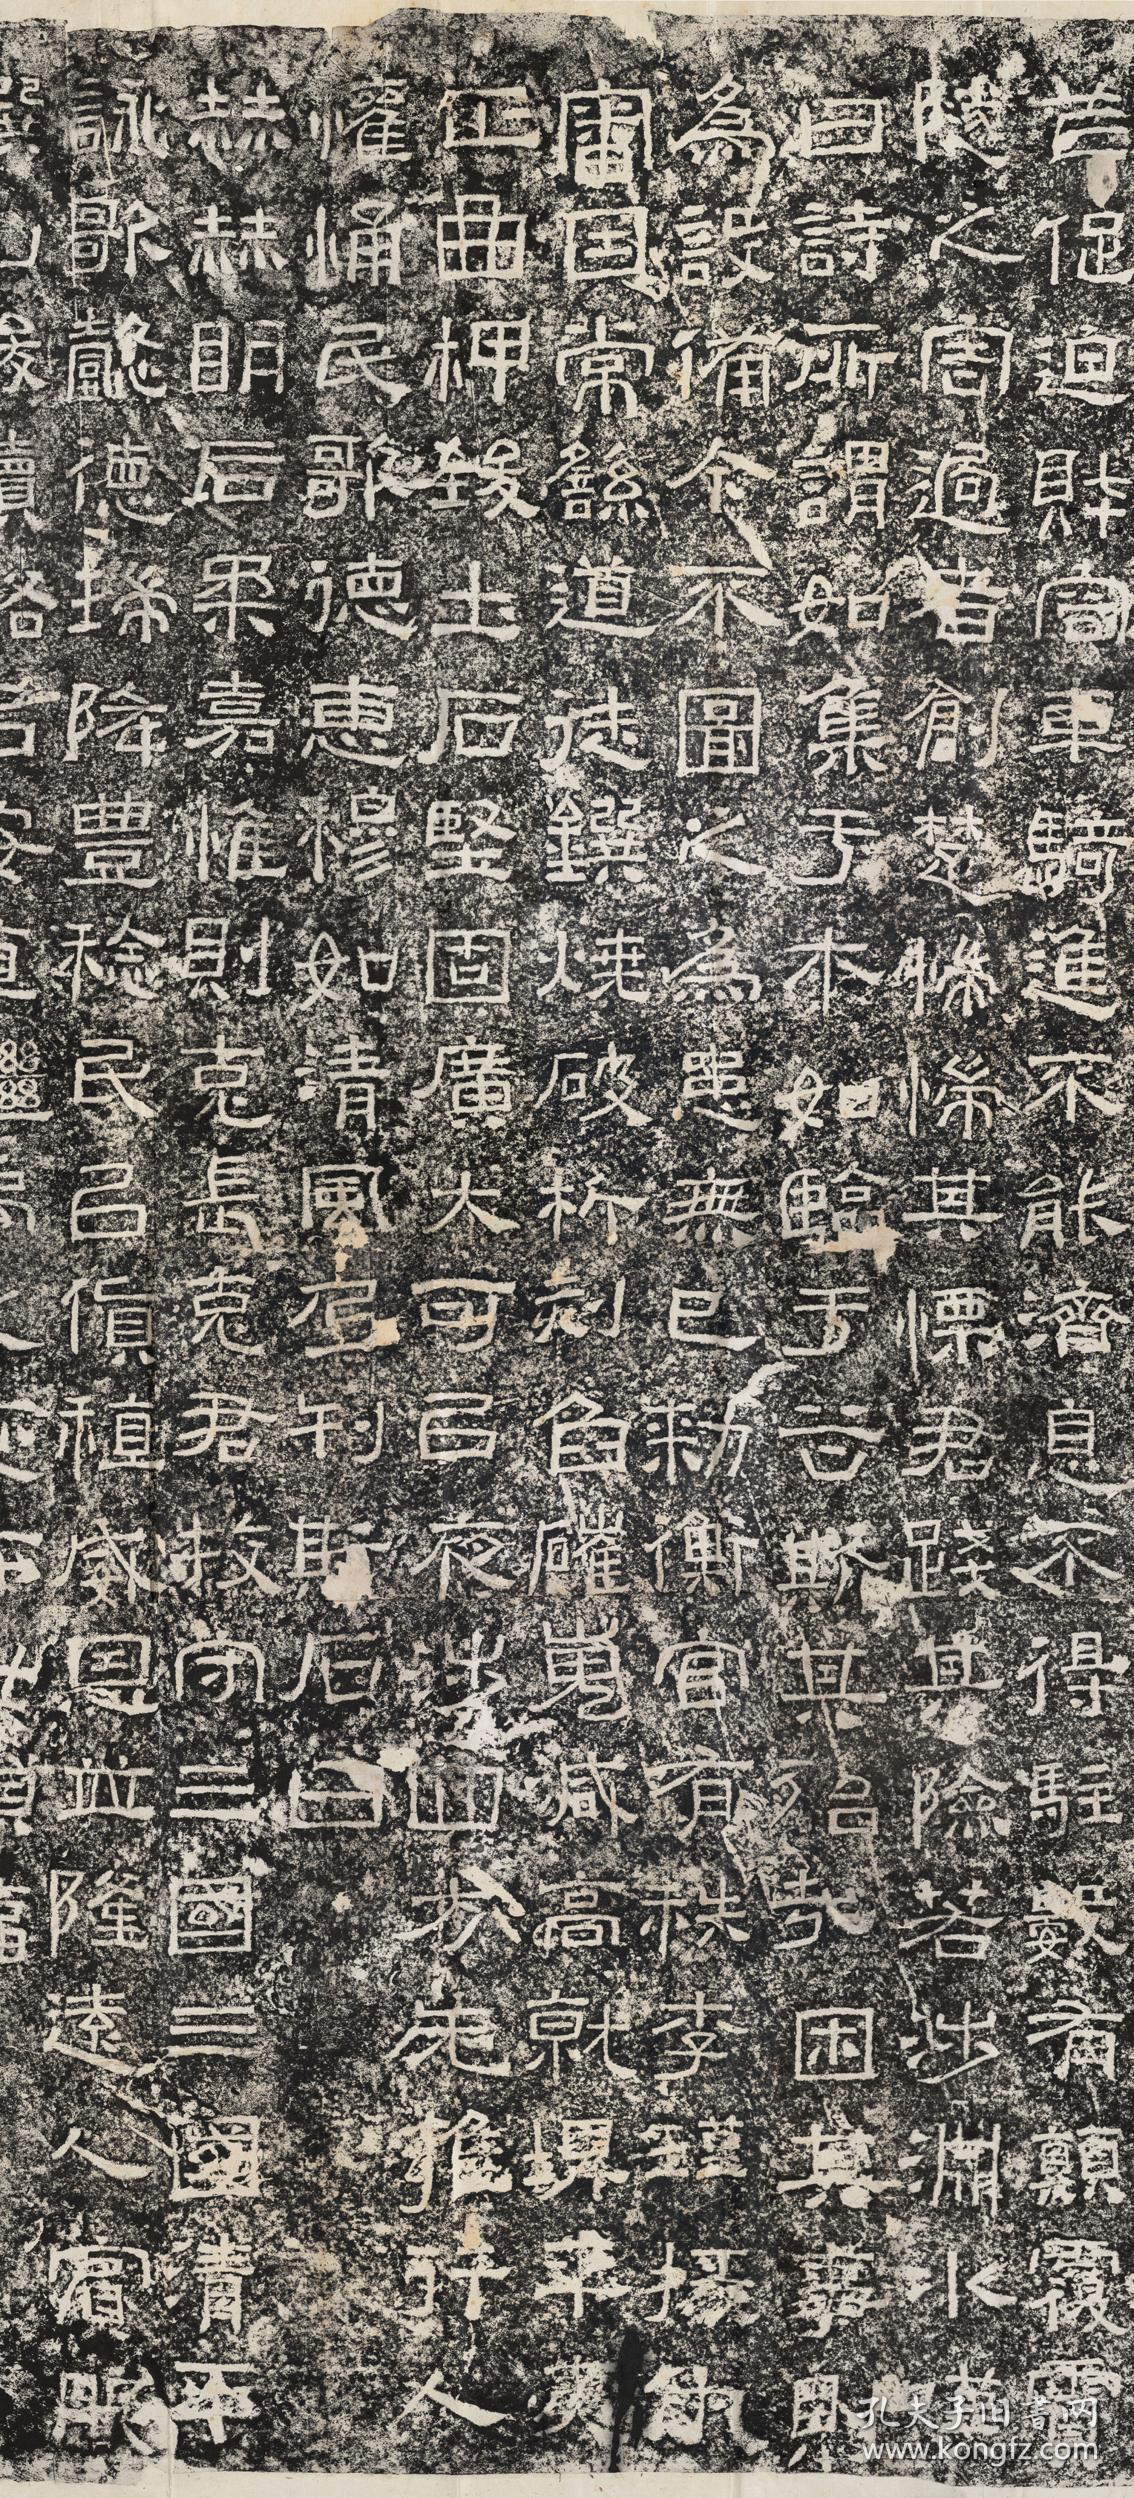 苲促迫財容車騎進不能濟息不得駐數有顛覆霣
隧之害過者創楚惴惴其慄君踐其險若涉淵冰歎
曰詩所謂如集于木如臨于谷斯其殆哉困其事則
為設備今不圖之為患無已敕衡官有秩李瑾掾仇
審因常繇道徒鐉燒破析刻臽磪嵬減高就埤平夷
正曲柙致土石堅固廣大可以夜涉四方无雍行人
懽悀民歌德惠穆如清風乃刊斯石曰
赫赫明后柔嘉惟則克長克君牧守三國三國清平
詠歌懿德瑞降豐稔民以貨稙威恩並隆遠人賓服
孔夫子旧书网
www.kongfz.com